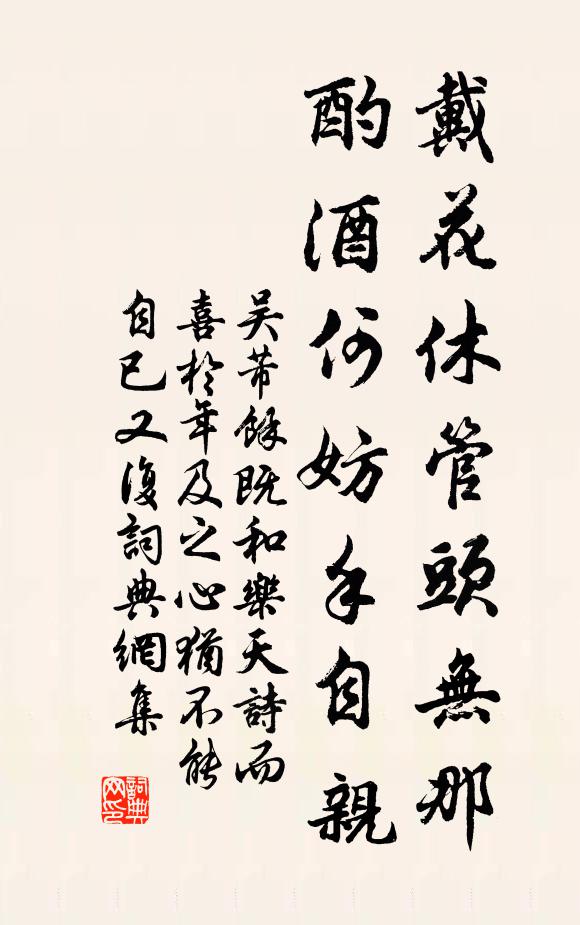 戴花休管頭無那
酌酒何妨手自親
吴芾餘既和樂天詩而
喜於年及之心猶不能
自已又復詞典網集
詞典网印